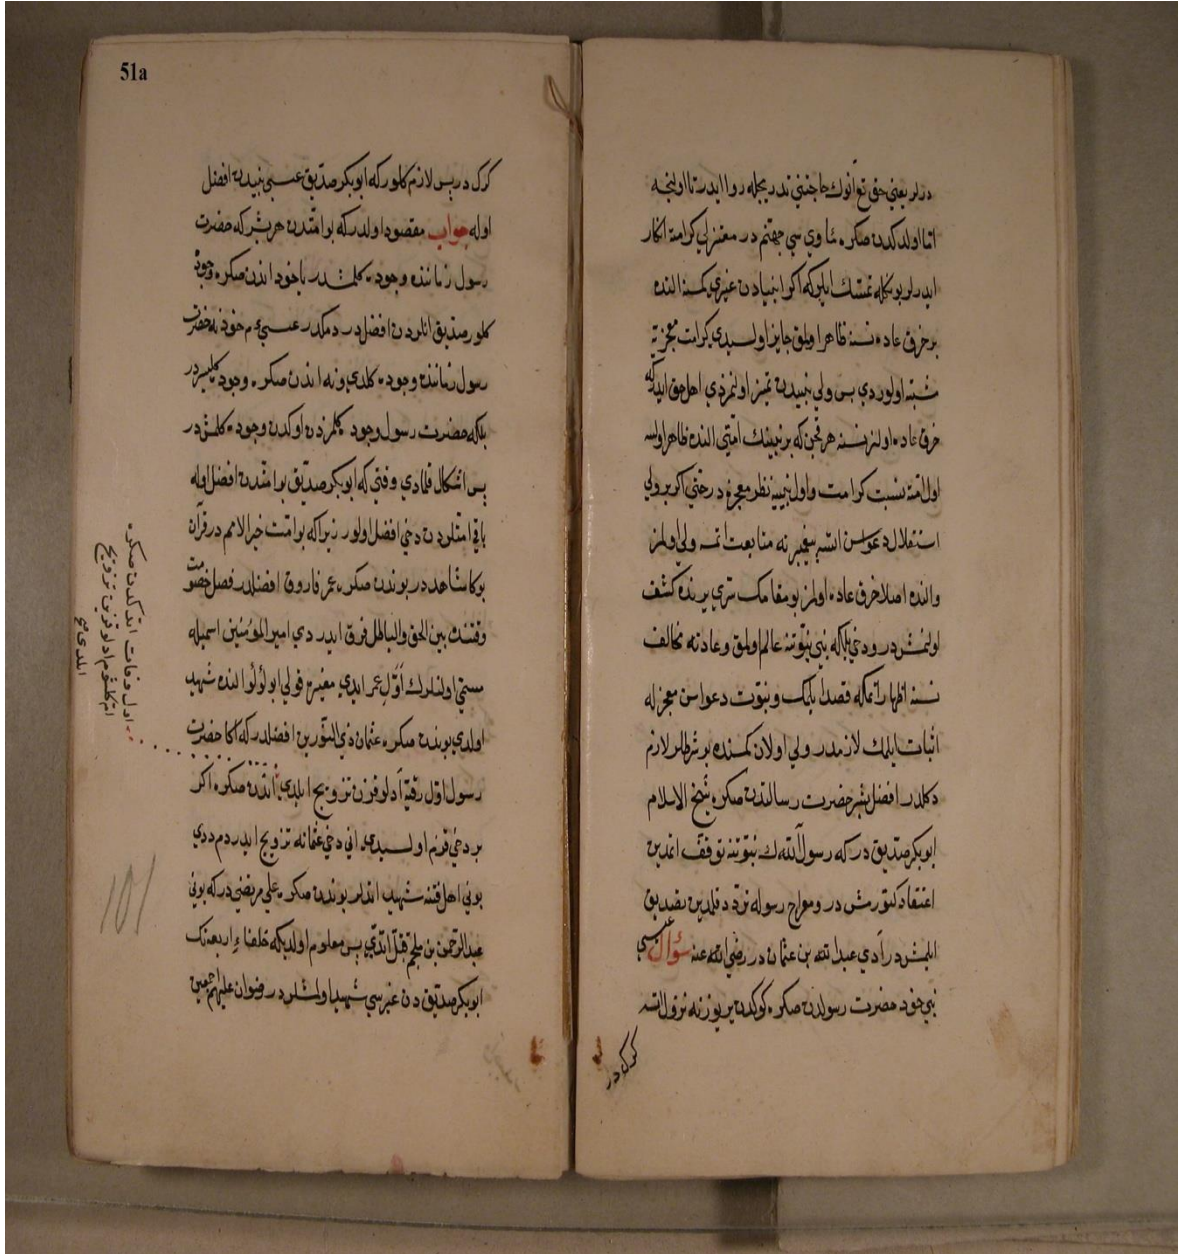 درلر یعنی حق تعالی انوك حاجتنی تدریجله روا ایدر تا اولنجه
اندن صکره
ایدرلر بونکله تمسك ایلر که اکر انبیادن غیری کمسنه النده
بر خرق عاده نسنه ظاهر اولمق جایز اولسیدی کرامت معجزیه
مشتبه اولوردی بس ولی نبیدن تمیز اولنمزدی اهل حق ایدرکه
خرق عاده اولنر نسنه هر قچن که بر نبینك امتی النده ظاهر اولسه
اول امته نسبت کرامت و اول نبییه نظر معجزه در حتی اکر بر ولی
استقلال دعواسن اتسه پیغمبرنه متابعت اتمسه ولی اولمز
والنده اصلا خرق عاده اولمز بو مقامك سری یرنده کشف
اولنمشدر ودخی بلکه نبی نبوتنه عالم اولمق وعادته مخالف
نسنه اظهار اتمکه قصد ایلمك ونبوت دعواسن معجزله
اثبات ایلمك لازمدر ولی اولان کمسنده بو شرطلر لازم
دکلدر افضل بشر حضرت رسالتدن صکره شیخ الاسلام
ابوبکر صدیق در که رسول الله ك نبوتنه توقف اتمدین
اعتقاد کتورمش در ومعراج رسوله تردد قلمدین تصدیق
ایلمشدر آدی عبدالله بن عثمان در رضی الله عنه سؤال عیسی
نبی خود حضرت رسولدن صکره کوکدن یر یوزنه نزول اتسه
کرك در
51a
کرك در بس لازم کلور که ابوبکر صدیق عیسی نبیدن افضل
اوله جواب مقصود اولدر که بو امتدن هر بشر که حضرت
رسول زماننده وجوده کلمشدر یا خود اندن صکره وجوده
کلور صدیق انلردن افضل در دمکدر عیسی هم خود نه حضرت
رسول زماننده وجوده کلدی ونه اندن صکره وجوده کلیسر در
بلکه حضرت رسول وجوده کلمزدن اوکدن وجوده کلمش در
بس اشکال قلمادی وقتی که ابوبکر صدیق بو امتدن افضل اوله
باقی امتلردن دخی افضل اولور زیرا که بو امت خیر الامم در قرآن
بوکا شاهد در بوندن صکره عمر فاروق افضلدر فصل خصومت
وقتنده بین الحق والباطل فرق ایدردی امیر المؤمنین اسمیله
مسمی اولنلرك اول عمر ایدی مغیره قولی ابو لؤلؤ النده شهید
اولدی بوندن صکره عثمان ذی النورین افضلدر که اکا حضرت
رسول اول رقیه آدلو قزن تزویج ایلدی اندن صکره اکر
بر دخی قزم اولسیدی انی دخی عثمانه تزویج ایدردم ددی
بونی اهل فتنه شهید اتدلر بوندن صکره علی مرتضی در که بونی
عبدالرحمن بن ملجم قتل اتدی بس معلوم اولدیکه خلفاء اربعه نك
ابوبکر صدیق دن غیرسی شهید اولمشلردر رضوان علیهم اجمعین
اول وفات اتدکدن صکره
ام کلثوم ادلو قزین تزویج
ایلدی
101